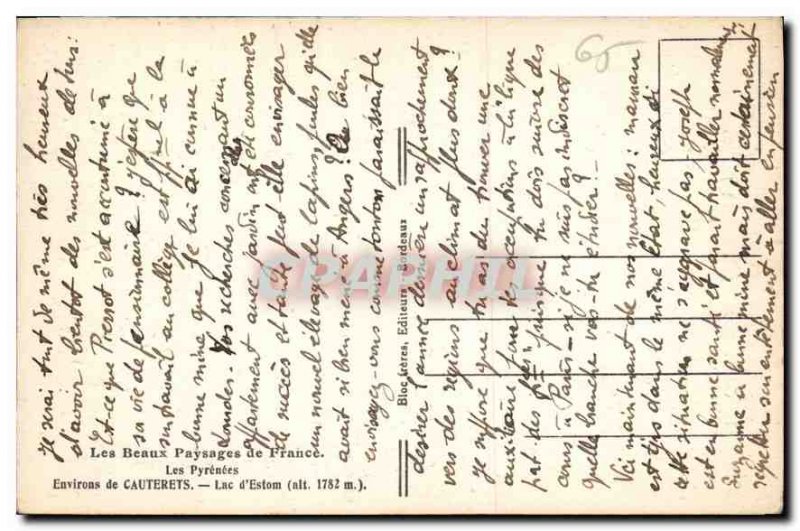 je serai tout de même très heureux
d'avoir bientôt des nouvelles de tous:
Est-ce que Pressot s'est accoutumé à
sa vie de pensionnaire? j'espère que
son travail au collège est égal à la
bonne mine que je lui ai connue à
Londres. Vos recherches concernant un
appartement avec jardin ont été couronnées
de succès et tante peut-elle envisager
un nouvel élevage de lapins, poules qu'elle
avait si bien mené à Angers? Ou bien
envisagez-vous comme tonton paraissait le
désirer l'année dernière un rapprochement
vers des régions au climat plus doux?
je suppose que tu as du trouver une
auxiliaire pour tes occupations à la ligue
par des puisque tu dois suivre des
cours à Paris - si je ne suis pas indiscret
quelle branche vas-tu étudier? -
Voici maintenant de nos nouvelles: maman
est toujours dans le même état, heureux si
cette situation ne s'aggrave pas - Joseph
est en bonne santé et paraît travailler normalement
Suzanne a bonne mine mais doit certainement
regretter son entêtement à aller en pension
65
Bloc Frères, Editeurs, Bordeaux
CPARAMA
Les Beaux Paysages de France.
Les Pyrénées
Environs de CAUTERETS. — Lac d'Estom (alt. 1782 m.).